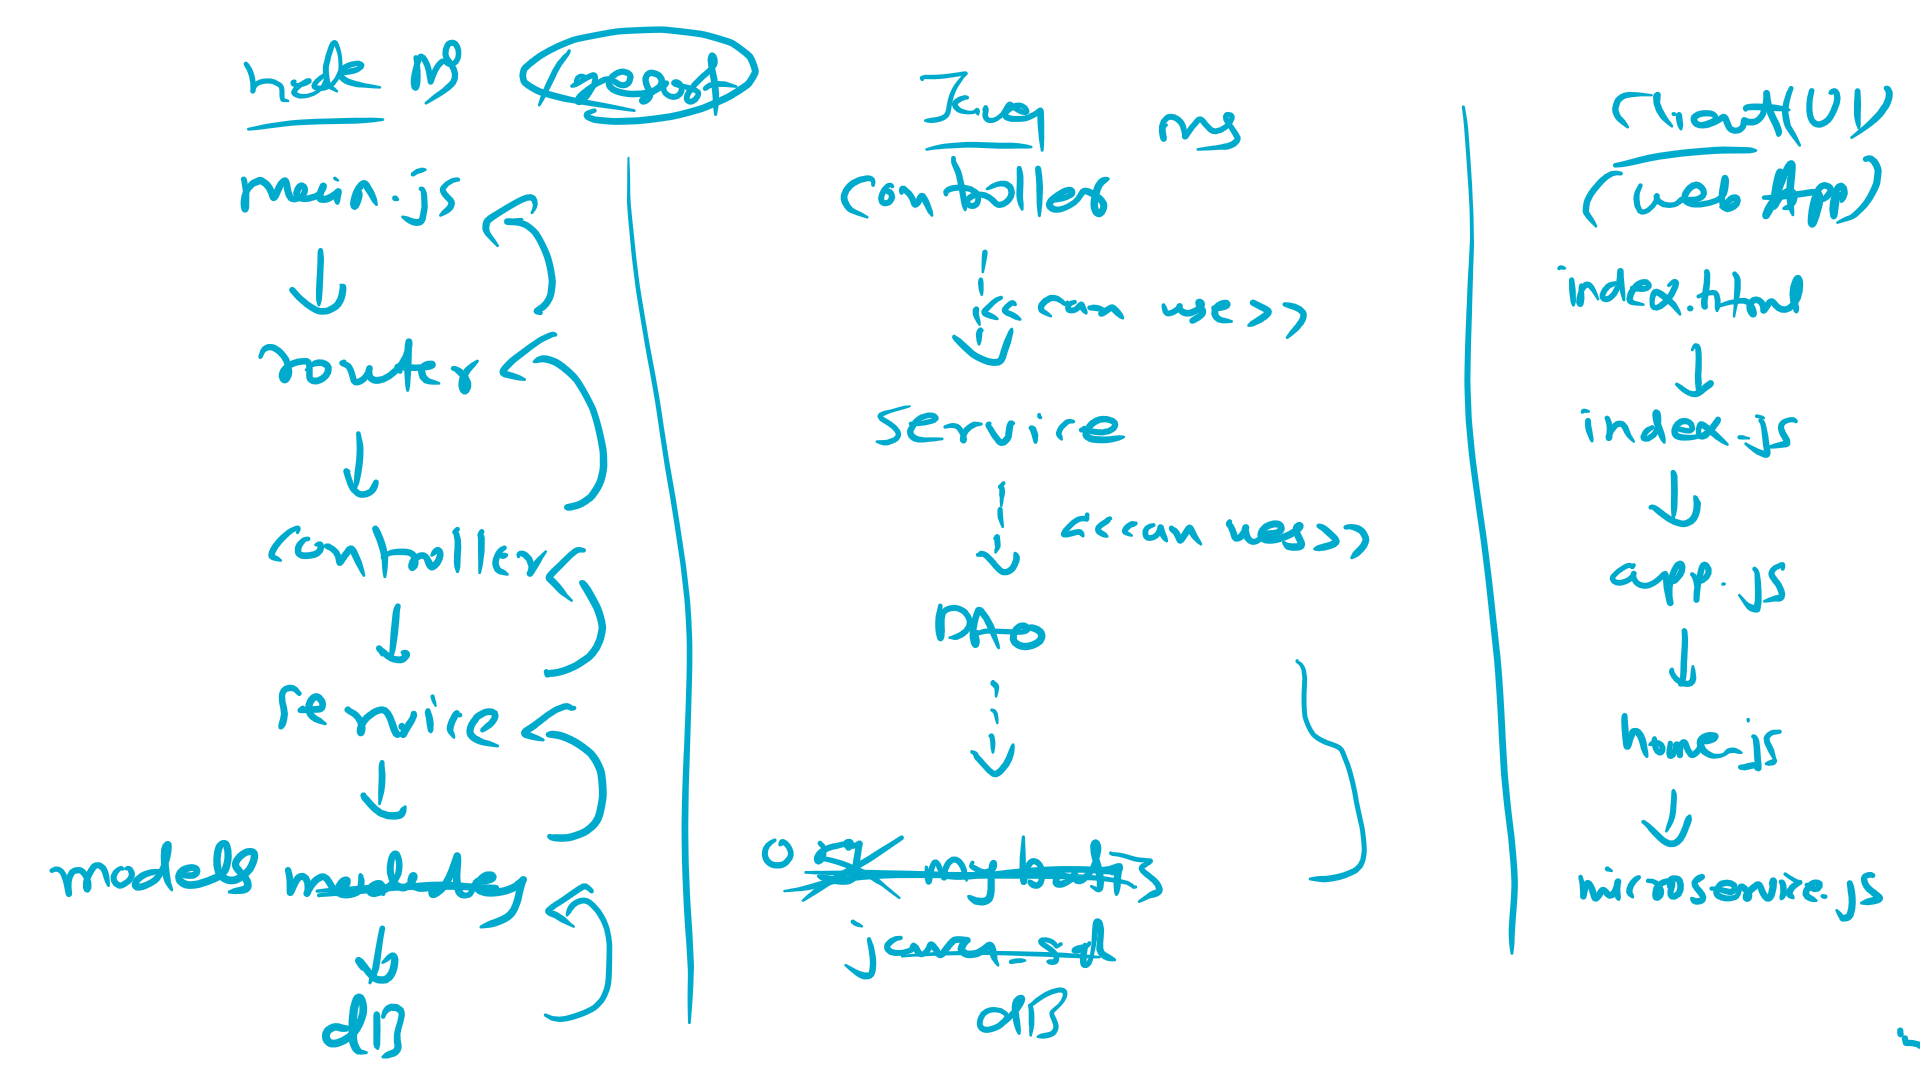 node ms /report
main.js
router
controller
service
models
dB
Java ms
controller
<<can use>>
service
<<can ues>>
DAO
java.sql
dB
Client(UI)
(web App)
index.html
index.js
app.js
home.js
microservice.js